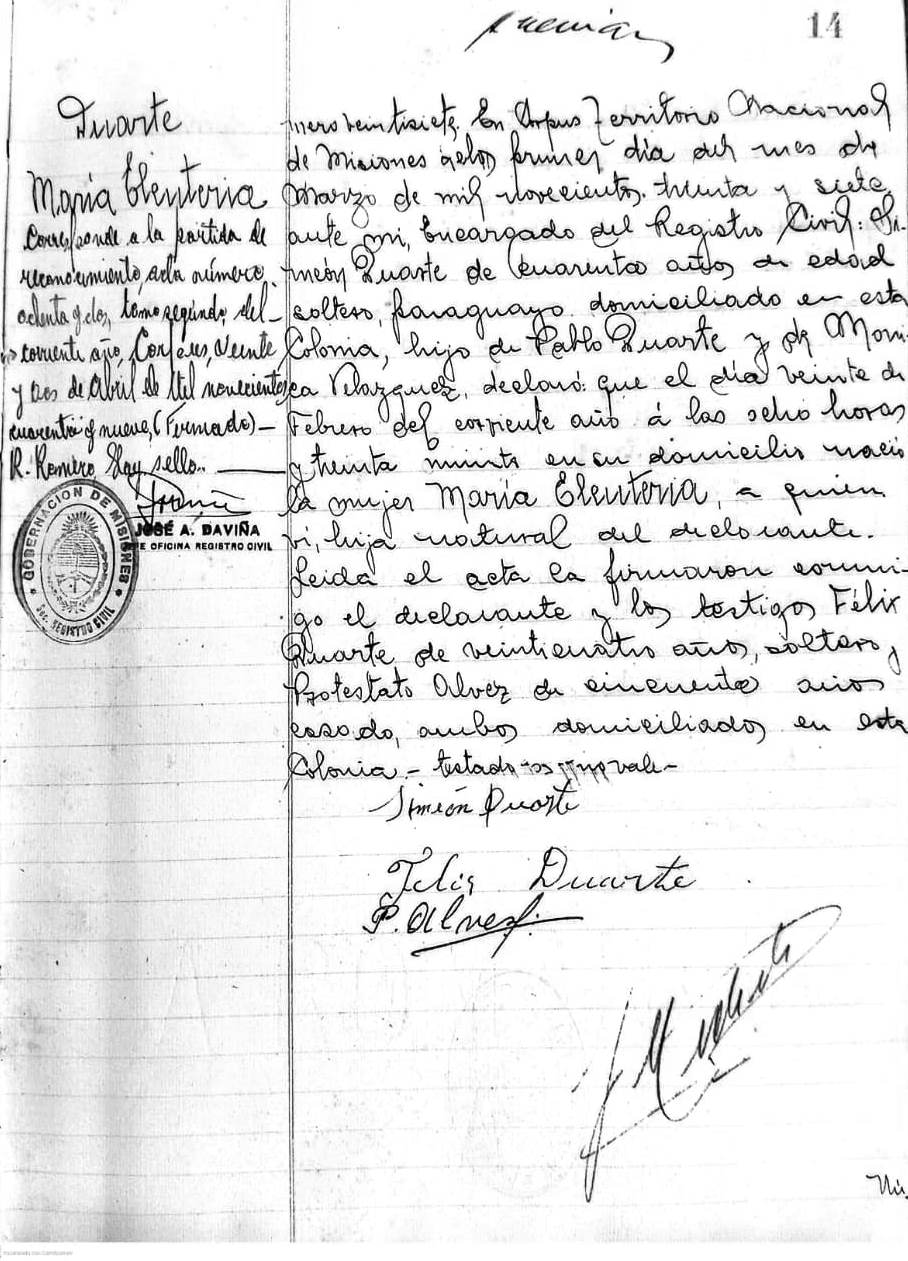 14
Duarte
María Eleuteria
Corresponde a la partida de
reconocimiento, acta número
ochenta y dos, tomo segundo, del
corriente año, Corpus, Veinte
y dos de Abril de Mil novecientos
cuarenta y nueve, (Firmado)—
R. Romero Hay sello.
JOSÉ A. DAVIÑA
E OFICINA REGISTRO CIVIL
GOBERNACION DE MISIONES
REGISTRO CIVIL
mero veintisiete. En Corpus Territorio Nacional
de Misiones a los primer día del mes de
Marzo de mil novecientos treinta y siete
ante mi, Encargado del Registro Civil: Si-
meón Duarte de cuarenta años de edad
soltero, paraguayo domiciliado en esta
Colonia, hijo de Pablo Duarte y de Moni-
ca Velazquez, declaró: que el día veinte de
Febrero del corriente año á las ocho horas
y treinta minuts en su domicilio nació
la mujer María Eleuteria, a quien
vi, hija natural del declarante.
Leida el acta la firmaron conmi-
go el declarante y los testigos Félix
Duarte de veinticuatro años, soltero y
Protestato Alvez de cincuenta años
casado, ambos domiciliados en esta
Colonia.- testado vale-
Simeón Duarte
Felis Duarte
P. Alvez.